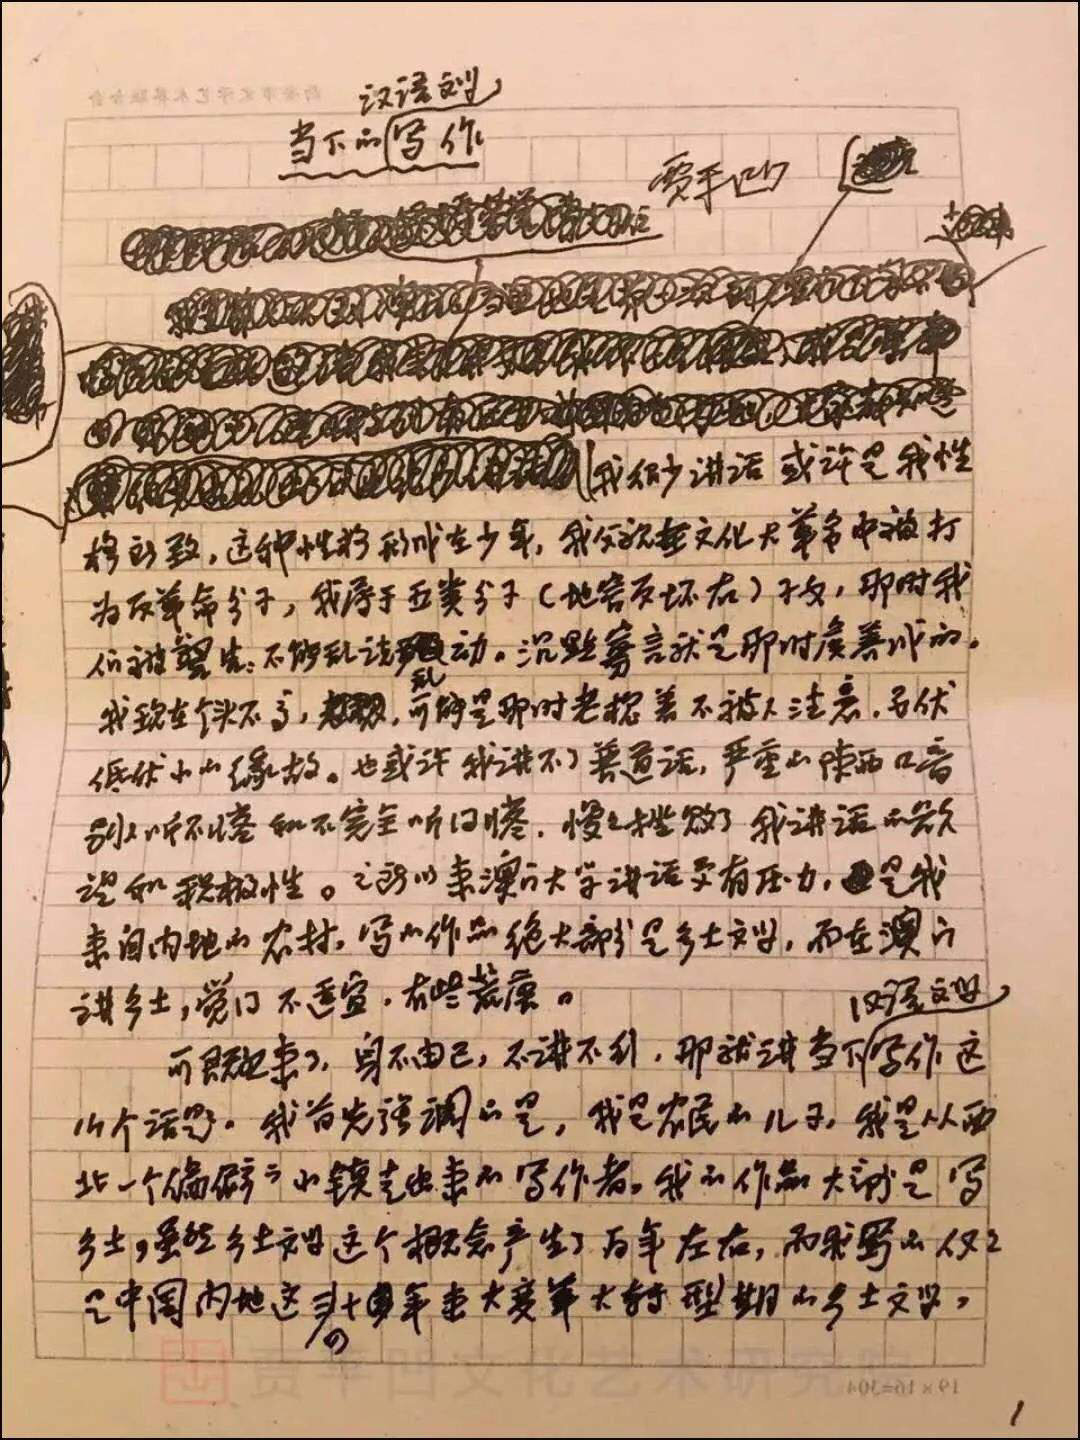 汉语文学
当下的写作
贾平凹
我很少讲话或许是我性
格所致，这种性格形成在少年，我父亲在文化大革命中被打
为反革命分子，我属于五类分子（地富反坏右）子女，那时我
们被警告：不能乱说乱动。沉默寡言就是那时候养成的。
我现在个头不高，可能是那时老想着不被人注意，
低伏小的缘故。也或许我讲不了普通话，严重的陕西口音
别人听不懂和不完全听得懂，慢慢挫败了我讲话的欲
望和积极性。之所以来澳门大学讲话更有压力，是我
来自内地的农村，写的作品绝大部分是乡土文学，而在澳门
讲乡土，觉得不适宜，有些荒唐。
汉语文学
可既已来了，身不由己，不讲不行，那就讲当下写作这
个话题。我首先强调的是，我是农民的儿子，我是从西
北一个偏僻的小镇走出来的写作者。我的作品大部是写
乡土，虽然乡土文学这个概念产生了百年左右，而我写的仅仅
是中国内地这四十年来大变革大转型期的乡土文学，
贾平凹文化艺术研究院
19×16=304
1